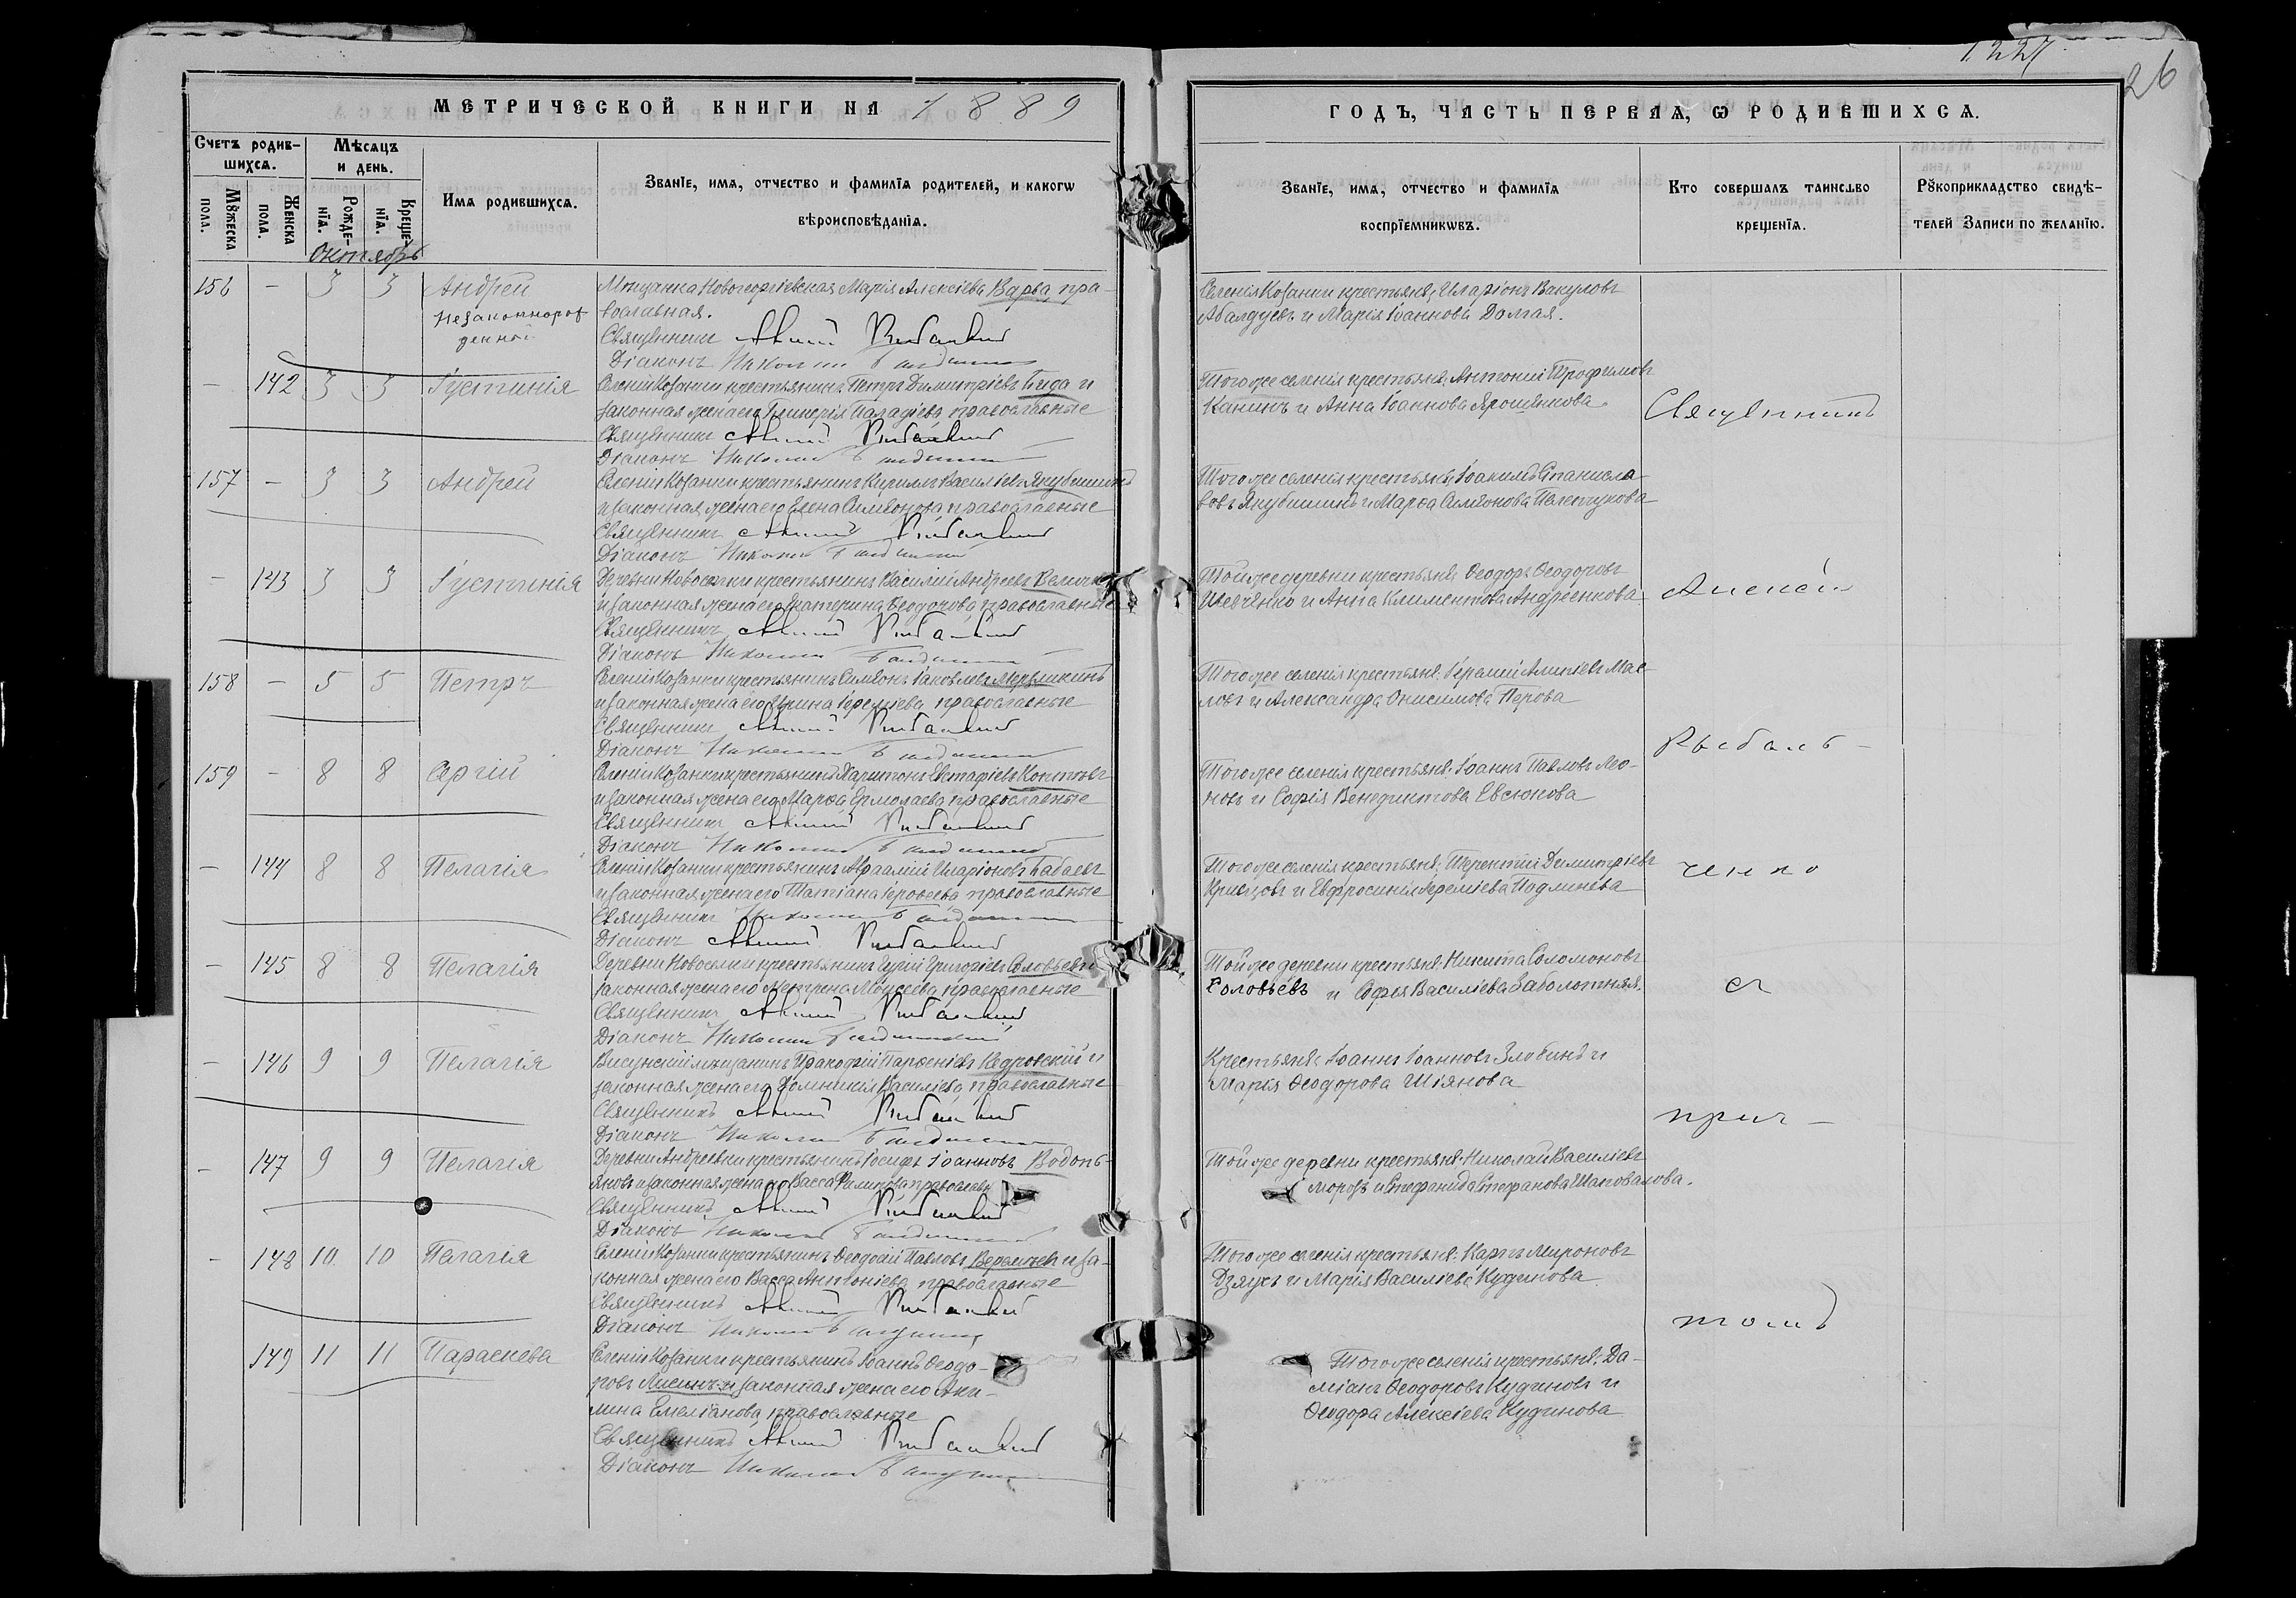 1227
26
МЕТРИЧЕСКОЙ КНИГИ НА 1889
ГОДЪ, ЧАСТЬ ПЕРВАЯ, Ѡ РОДИВШИХСѦ.
Счетъ родившихсѧ.
Мѣсѧцъ и день.
Имѧ родившихсѧ.
Званїе, имѧ, отчество и фамилїѧ родителей, и какогѡ
вѣроисповѣданїѧ.
Званїе, имѧ, отчество и фамилїѧ
воспрїемникѡвъ.
Кто совершалъ таинство
крещенїѧ.
Рꙋкоприкладство свидѣ-
телей Записи по желанїю.
Мꙋжеска пола.
Женска пола.
Рожде-нїѧ.
Креще-нїѧ.
Октябрь
156 - 3 3 Андрей
незаконнорож
денной
Мѣщанка Новогеоргіевская Марія Алексіева Варва, пра-
вославная.
Священникъ Алексій Рыбальченко
Діаконъ Николай
Селенія Козанки крестьяне, Иларіонъ Вакуловъ
Абалдуевъ и Марія Іоаннова Долгая.
- 142 3 3 Іустинія
Селенія Козанки крестьянинъ Петръ Димитріевъ Бида и
законная жена его Гликерія Паладіева православные
Священникъ Алексій
Діаконъ Николай
Того же селенія крестьяне: Антоній Трофимовъ
Канинъ и Анна Іоаннова Ярошенкова.
Священникъ
157 - 3 3 Андрей
Селенія Козанки крестьянинъ Кирилъ Василіевъ Якубишинъ
и законная жена его Елена Симеонова православные
Священникъ Алексій
Діаконъ Николай
Того же селенія крестьяне Іоакимъ Станисла
вовъ Якубишинъ и Марѳа Симеонова Пелепукова
- 143 3 3 Іустинія
Деревни Новоселки крестьянинъ Василій Андреевъ Величко
и законная жена его Екатерина Ѳеодорова православные
Священникъ Алексій
Діаконъ Николай
Той же деревни крестьяне Ѳеодоръ Ѳеодоровъ
Шевченко и Анна Климентова Андреенкова.
Алексій
158 - 5 5 Петръ
Селенія Козанки крестьянинъ Симеонъ Іаковлевъ Мерзликинъ
и законная жена его Ирина Іереміева православные
Священникъ Алексій
Діаконъ Николай
Того же селенія крестьяне: Іеремій Алипіевъ Мас
ловъ и Александра Онисимова Перова
Рыбаль-
159 - 8 8 Сергій
Селенія Козанки крестьянинъ Харитонъ Евстафіевъ Коптевъ
и законная жена его Марѳа Ермолаева православные
Священникъ Алексій
Діаконъ Николай
Того же селенія крестьяне: Іоаннъ Павловъ Лео-
новъ и Софія Венедиктова Евсюкова
- 144 8 8 Пелагія
Селенія Козанки крестьянинъ Авраамій Иларіоновъ Бабаевъ
и законная жена его Татіана Іероѳеева православные
Священникъ Николай
Діаконъ Алексій
Того же селенія крестьяне: Терентій Димитріевъ
Кривцовъ и Евфросинія Іереміева Подлинева
ченко
- 145 8 8 Пелагія
Деревни Новоселки крестьянинъ Григоріевъ Соловьевъ и
законная жена его Матрена Моисеева православные
Священникъ Алексій
Діаконъ Николай
Той же деревни крестьяне: Никита Соломоновъ
Соловьевъ и Софья Василіева Заболотняя.
съ
- 146 9 9 Пелагія
Висунскій мѣщанинъ Прокофій Парѳеніевъ Кедровскій и
законная жена его Домникія Василіева, православные
Священникъ Алексій
Діаконъ Николай
Крестьяне: Іоаннъ Іоанновъ Злобинъ и
Марія Ѳеодорова Шіянова
прич-
- 147 9 9 Пелагія
Деревни Андреевки крестьянинъ Іосифъ Іоанновъ Водопь-
яновъ и законная жена его Васса Филипова православн
Священникъ Алексій
Діаконъ Николай
Той же деревни крестьяне: Николай Василіевъ
Морозъ и Стефанида Стефанова Шаповалова.
- 148 10 10 Пелагія
Селенія Козанки крестьянинъ Ѳеодосій Павловъ и за-
конная жена его Васса Антоніева православные
Священникъ Алексій
Діаконъ Николай
Того же селенія крестьяне: Карпъ Мироновъ
Дзяухъ и Марія Василіева Кудинова.
томъ
149 11 11 Параскева
Селенія Козанки крестьянинъ Іоаннъ Ѳеодо-
ровъ Лисинъ и законная жена его Аки-
лина Емеліанова православные
Священникъ Алексій
Діаконъ Николай
Того же селенія крестьяне: Да-
міанъ Ѳеодоровъ Кудиновъ и
Ѳеодора Алексіева Кудинова